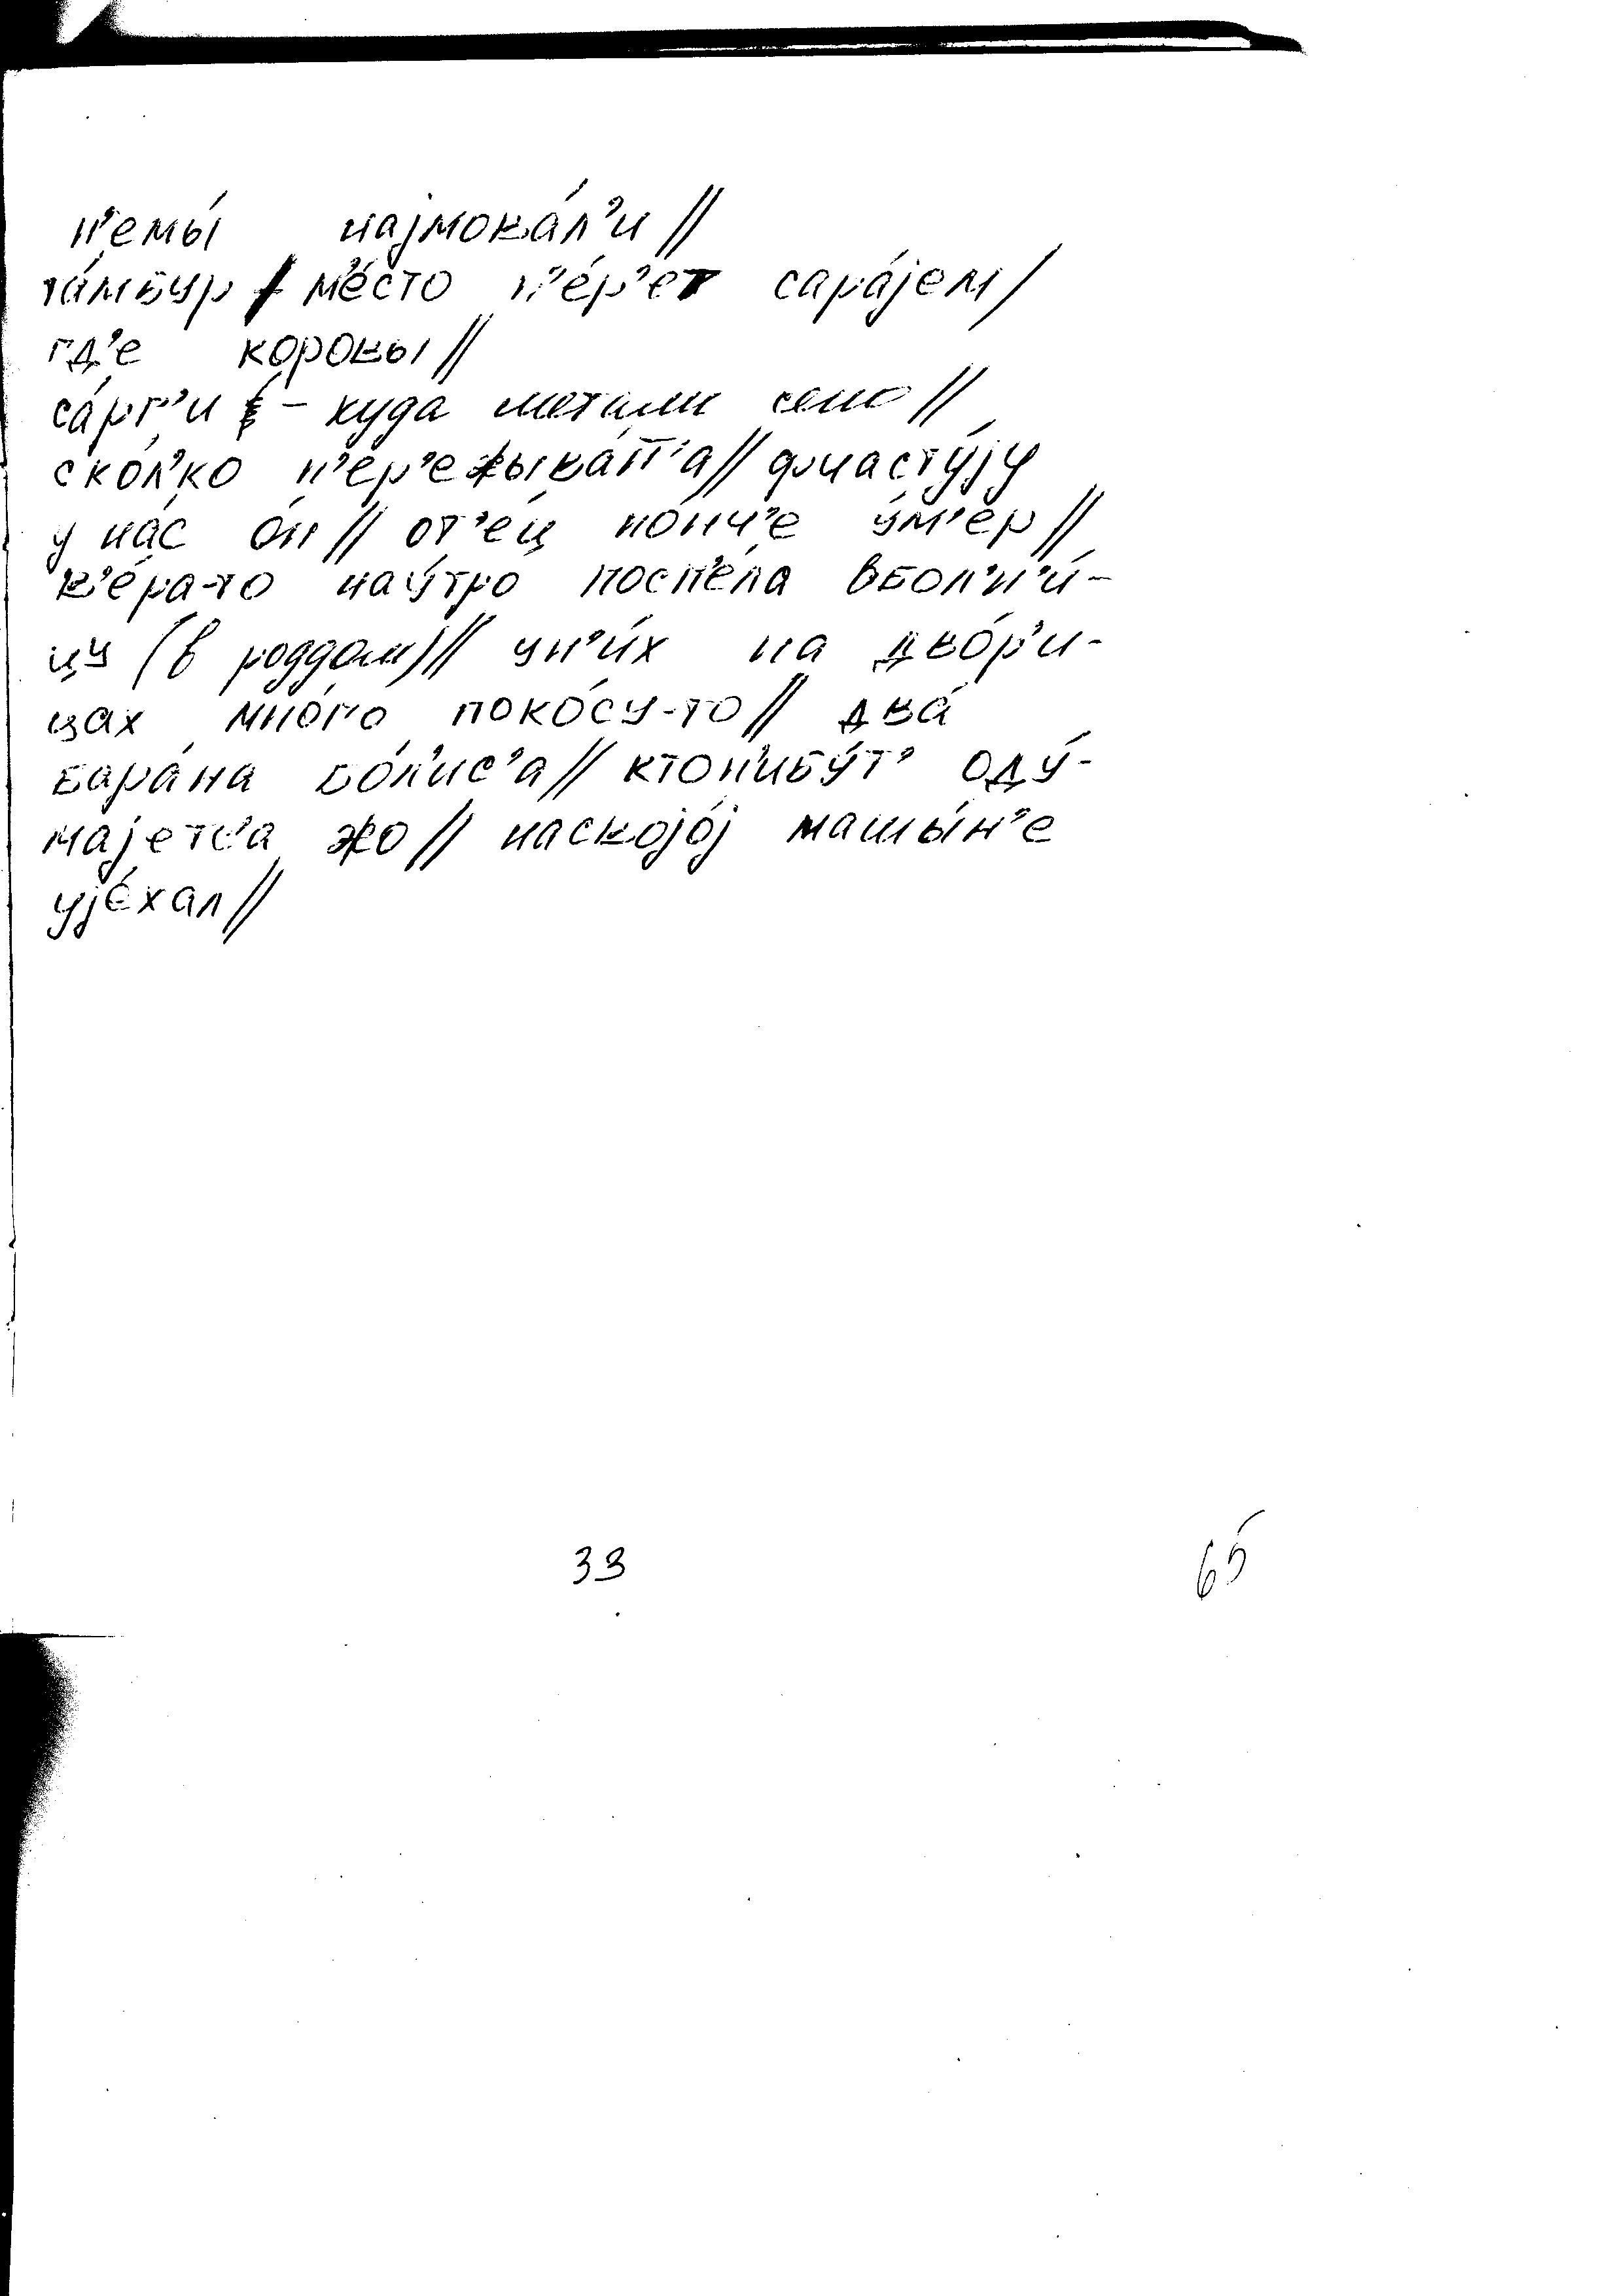 н'емы́ наjмова́л'и //
та́мбур / м'е́сто п'е́р'ет сара́jем /
гд'е коровы //
са́рг'и – куда метали сено //
ско́л'ко п'ер'ежыва́т'а // фчасту́jу
у на́с о́н // от'е́ц но́нч'е у́м'ер //
в'е́ра-то нау́тро посп'е́ла вбол'н'и́-
цу (в роддом) // ун'и́х на дво́р'и-
цах мно́го поко́су-то // два́
бара́на бо́л'ис'а // кто н'ибу́т' оду́-
маjетс'а жо // насвоjо́j машы́н'е
уjе́хал //
33
65